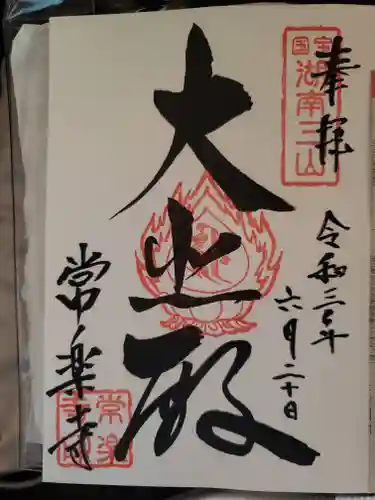 奉拝
国宝
湖南三山
令和三年
六月二十日
大悲殿
常楽寺
常楽
寺印